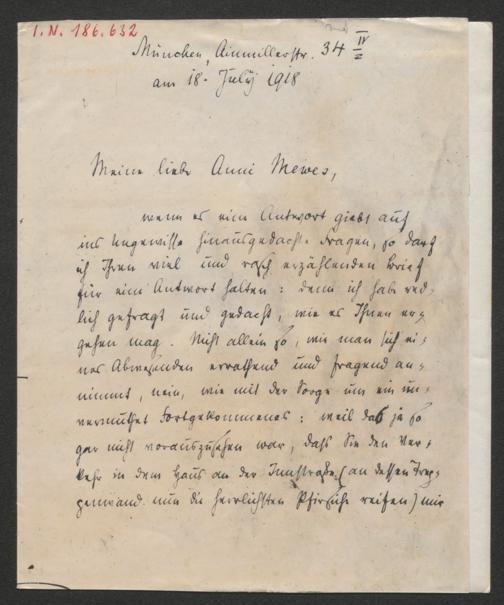 I.N. 186.632
München, Ainmillerstr. 34 IV
am 18. July 1918
Meine liebe Anni Mewes,
wenn es eine Antwort giebt auf
ins Ungewisse hinausgedachte Fragen, so darf
ich Ihren viel und rasch erzählenden Brief
für eine Antwort halten: denn ich habe red-
lich gefragt und gedacht, wie es Ihnen er-
gehen mag. Nicht allein so, wie man sich ei-
nes Abwesenden errathend und fragend an-
nimmt, nein, wie mit der Sorge um ein un-
vermuthet Fortgekommenes: weil das ja so
gar nicht vorauszusehen war, dass Sie den Ver-
kehr in dem Haus an der Innstraße (an dessen
nun die herrlichsten Pfirsiche reifen) mir